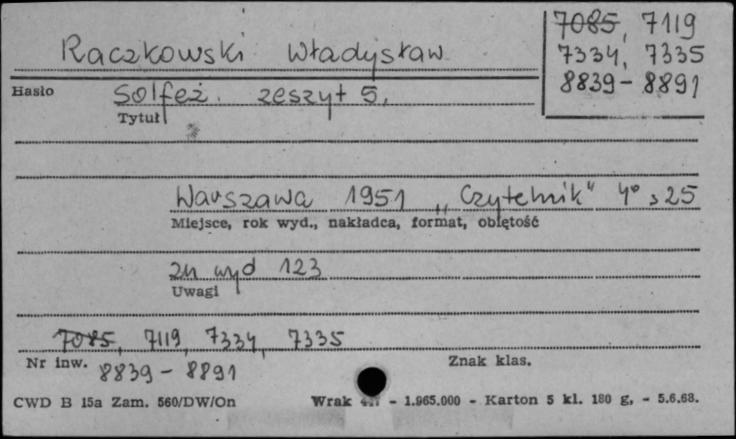 7085, 7119
Raczkowski Władysław
7334, 7335
8839 - 8891
Hasło
Solfeż. zeszyt 5.
Tytuł
Warszawa 1951 "Czytelnik" 4° s 25
Miejsce, rok wyd., nakładca, format, objętość
zn wyd 123
Uwagi
7085, 7119, 7334, 7335
Nr inw.
8839 - 8891
Znak klas.
CWD B 15a Zam. 560/DW/On
Wrak - 1.965.000 - Karton 5 kl. 180 g, - 5.6.68.